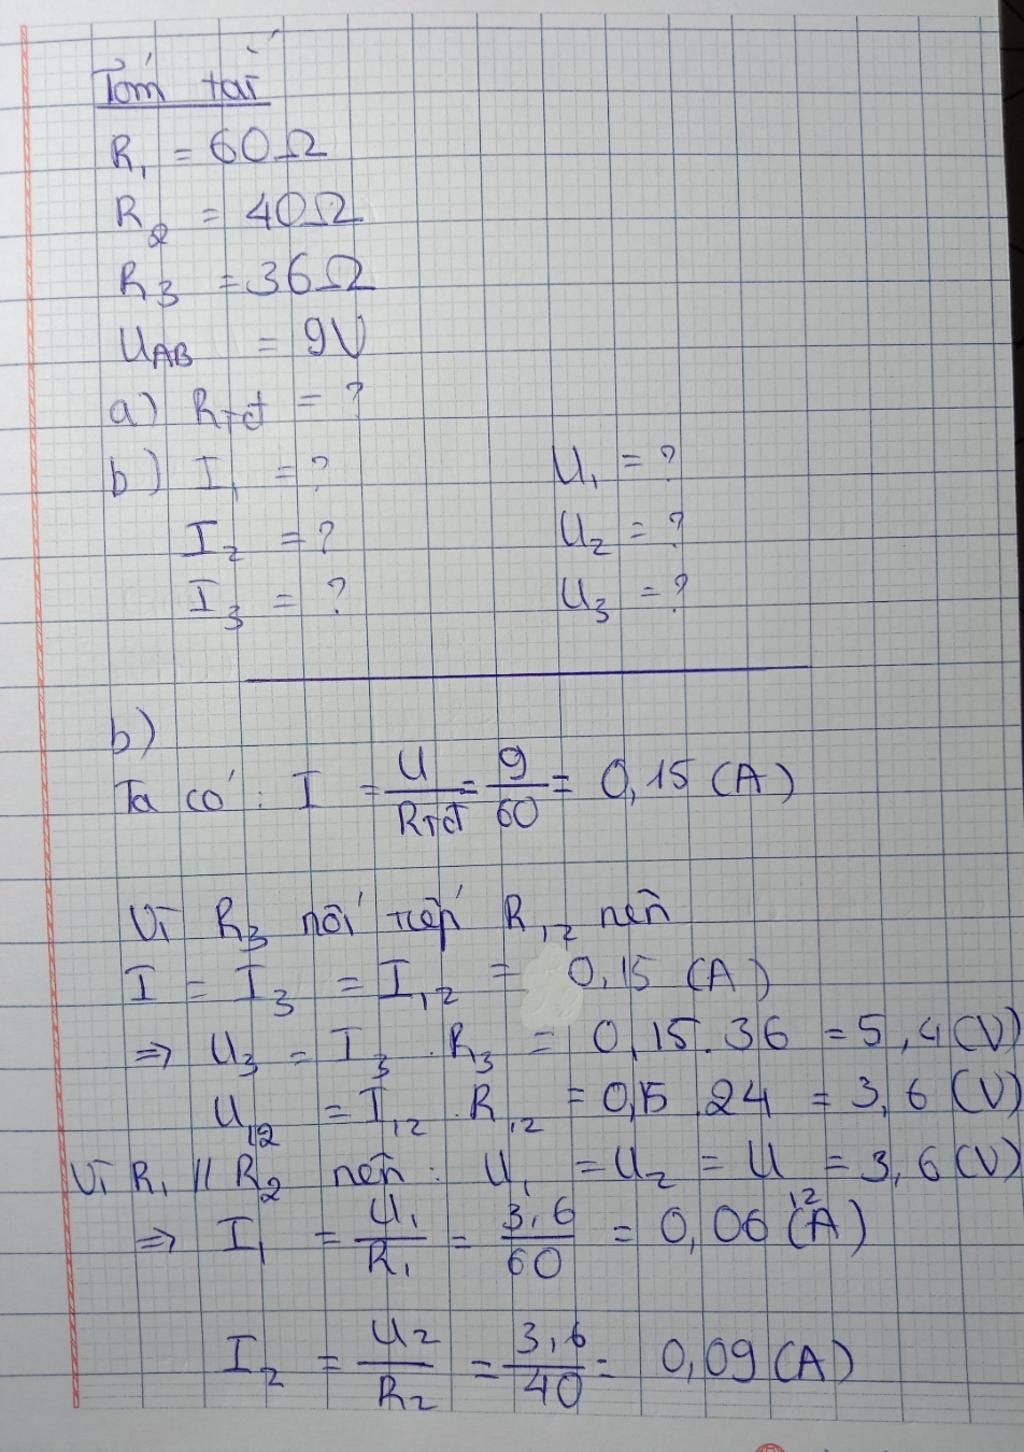 Tóm tắt
R₁ = 60Ω
R₂ = 40Ω
R₃ = 36Ω
U_AB = 9V
a) R_TĐ = ?
b) I₁ = ? U₁ = ?
I₂ = ? U₂ = ?
I₃ = ? U₃ = ?
b)
Ta có: I = U/R_TĐ = 9/60 = 0,15 (A)
Vì R₃ nối tiếp R₁₂ nên
I = I₃ = I₁₂ = 0,15 (A)
=> U₃ = I₃ . R₃ = 0,15.36 = 5,4 (V)
U₁₂ = I₁₂ . R₁₂ = 0,15.24 = 3,6 (V)
Vì R₁ // R₂ nên: U₁ = U₂ = U₁₂ = 3,6 (V)
=> I₁ = U₁/R₁ = 3,6/60 = 0,06 (A)
I₂ = U₂/R₂ = 3,6/40 = 0,09 (A)